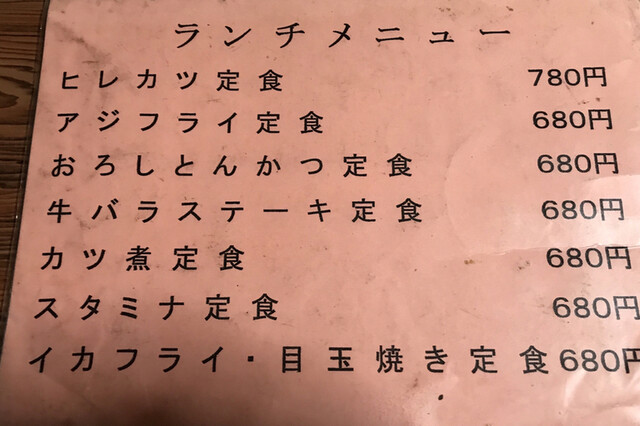 ランチメニュー
ヒレカツ定食 780円
アジフライ定食 680円
おろしとんかつ定食 680円
牛バラステーキ定食 680円
カツ煮定食 680円
スタミナ定食 680円
イカフライ・目玉焼き定食 680円